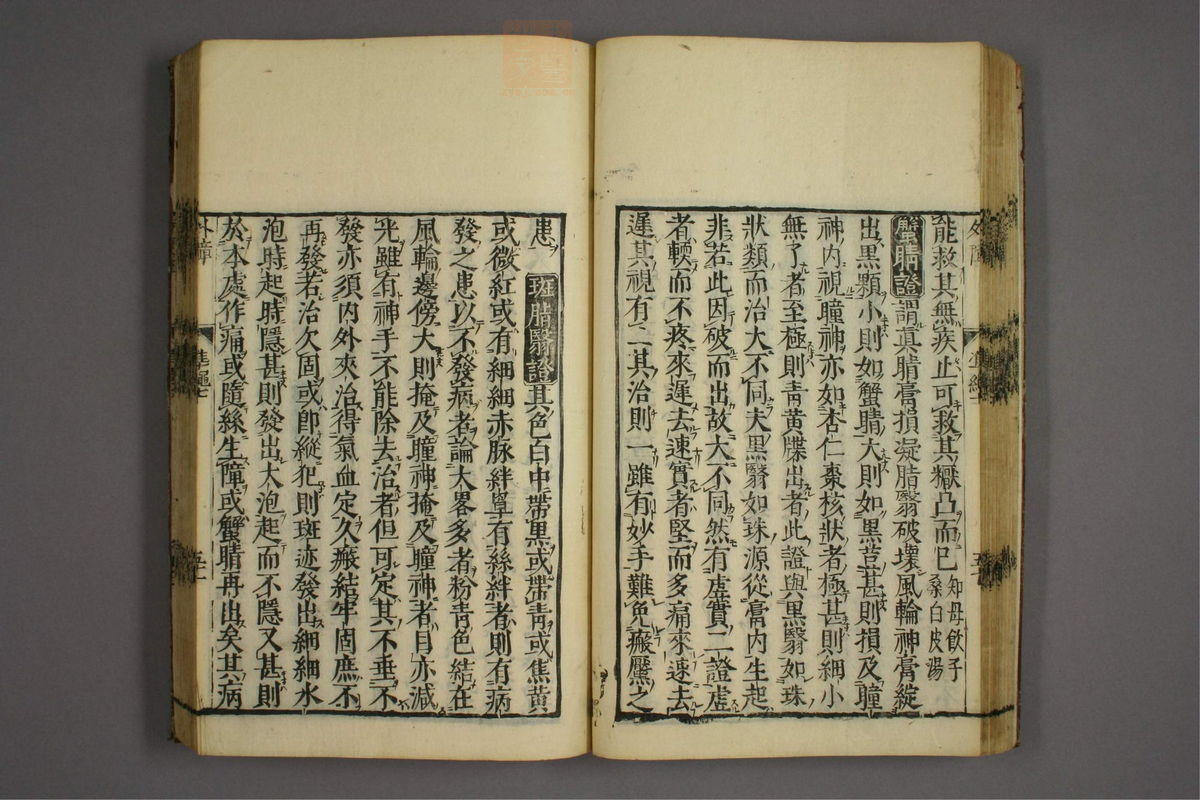 能救其無疾止可救其𤻤凸而已知母飲子
桑白皮湯
蟹睛證謂真睛膏損凝脂翳破壞風輪神膏綻
出黑顆小則如蟹睛大則如黑荳甚則損及瞳
神内視瞳神亦如杏仁棗核狀者極甚則細小
無了者至極則青黃牒出者此證與黑翳如珠
狀類而治大不同夫黑翳如珠源從膏内生起
非若此因破而出故大不同然有虛實二證虛
者軟而不疼來遲去速實者堅而多痛來速去
遲其視有二其治則一雖有妙手難免瘢靨之
患 斑脂翳證其色白中帶黑或帶青或焦黃
或微紅或有細細赤脉絆罩有絲絆者則有病
發之患以不發病者論大畧多者粉青色結在
風輪邊傍大則掩及瞳神掩及瞳神者目亦減
光雖有神手不能除去治者但可定其不垂不
發亦須内外夾治得氣血定久瘢結牢固庶不
再發若治欠固或卽縱犯則斑迹發出細細水
泡時起時隱甚則發出大泡起而不隱又甚則
於本處作痛或隨絲生障或蟹睛再出矣其病
外障
準繩七